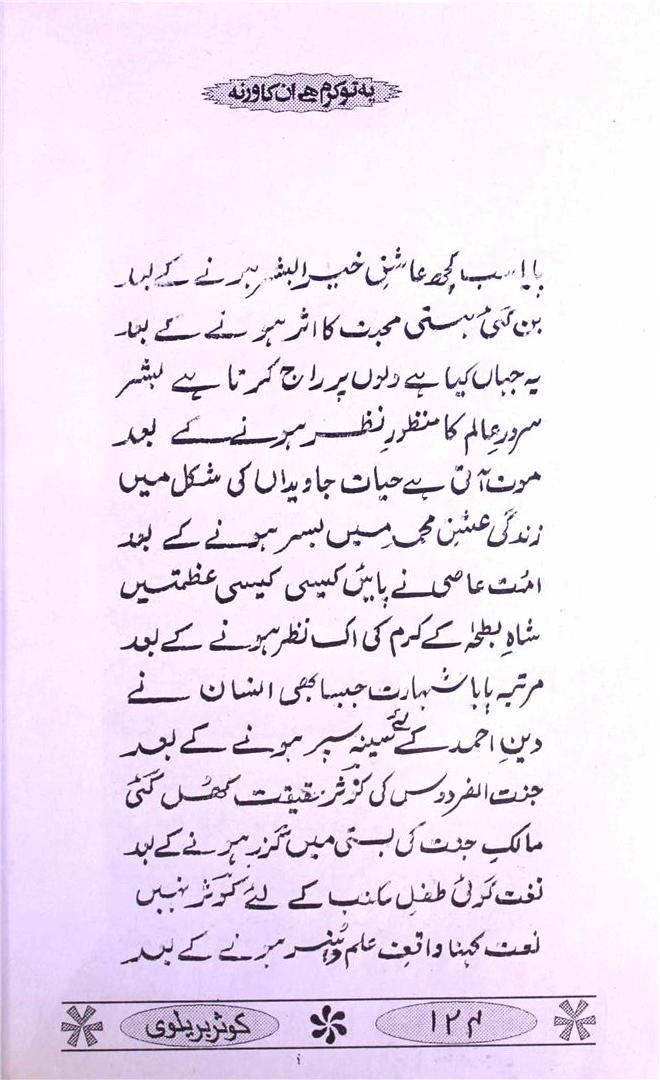 یہ تو کرم ہے ان کا ورنہ
پایا سب کچھ عاشقِ خیر البشر ہونے کے بعد
بن گئی ہستی محبت کا اثر ہونے کے بعد
یہ جہاں کیا ہے دلوں پر راج کرتا ہے بشر
سرورِ عالم کا منظورِ نظر ہونے کے بعد
موت آئی ہے حیات جاویداں کی شکل میں
زندگی عشقِ محمد میں بسر ہونے کے بعد
امت عاصی نے پائیں کیسی کیسی عظمتیں
شاہِ بطحٰہ کے کرم کی اک نظر ہونے کے بعد
مرتبہ پایا شہادت جیسا بھی انسان نے
دینِ احمد کے لئے سینہ سپر ہونے کے بعد
جنت الفردوس کی کوثر حقیقت کھل گئی
مالکِ جنت کی بستی میں گزر ہونے کے بعد
نعت گوئی طفلِ مکتب کے لئے کوثر نہیں
نعت کہنا واقفِ علم و ہنر ہونے کے بعد
کوثر بریلوی
۱۲۴